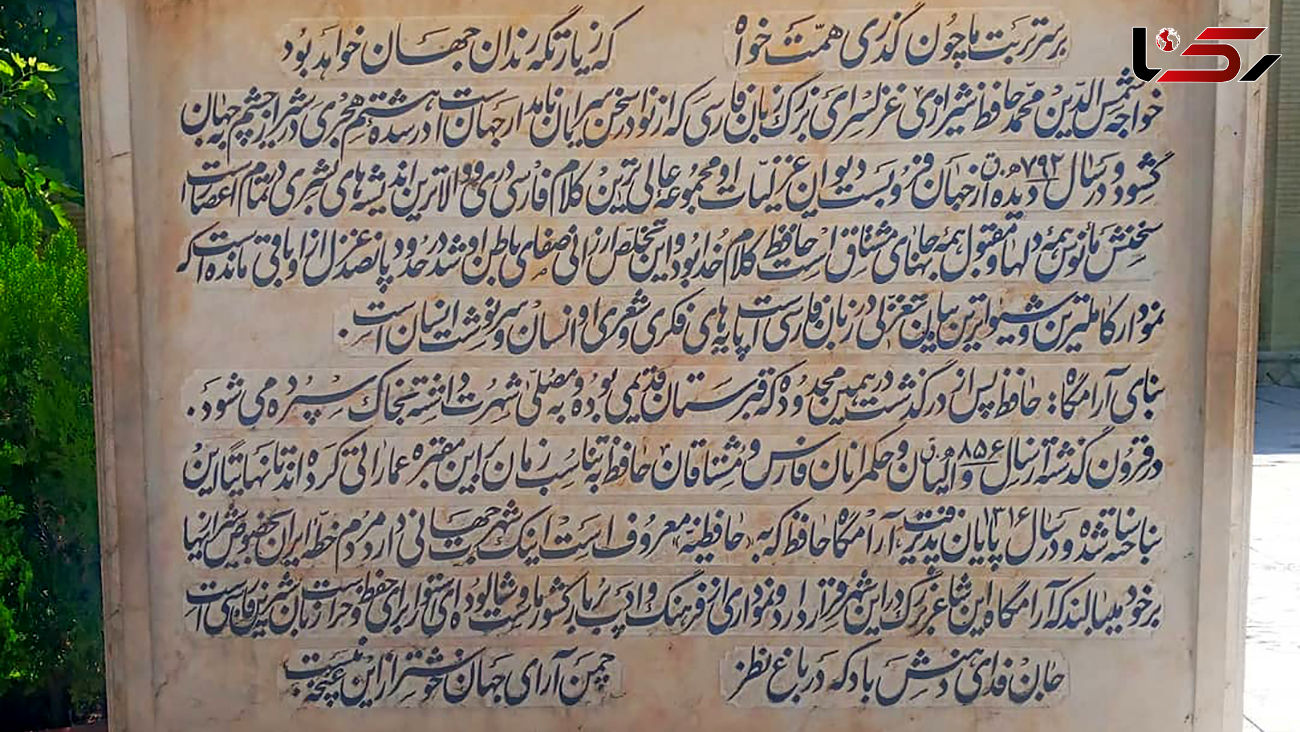 رکنا
بر سر تربت ما چون گذری همت خواه که زیارتگه رندان جهان خواهد بود
خواجه شمس الدین محمد حافظ شیرازی غزلسرای بزرگ زبان فارسی که از نوادر سخن سرایان نامدار جهانست در سده هشتم هجری در شیراز چشم به جهان
گشود و در سال ۷۹۲ ه.ق دیده از جهان فرو بست دیوان غزلیات او مجموعه عالی ترین کلام فارسی دری و والاترین اندیشه های بشری در تمام اعصار است
سخنش مأنوس همه دلها و مقبول همه جانهای مشتاق است حافظ کلام خدا بود و این تخلص ارزانی صفای باطن او شد در حدود پانصد غزل از او باقی مانده است که
نمودار کاملترین و شیواترین بیان تغزلی در زبان فارسی است پایه های فکری و شعری او انسان و سرنوشت انسان است.
بنای آرامگاه: حافظ پس از درگذشت در همین محدوده که قبرستان قدیمی بوده و به مصلی شهرت داشته بخاک سپرده می شود.
در قرون گذشته از سال ۸۵۶ ه.ق والیان و حکمرانان فارس و مشتاقان حافظ به تناسب زمان بر این مقبره عماراتی کرده اند تا نهایتا این
بنا ساخته شده و در سال ۱۳۱۶ پایان پذیرفت آرامگاه حافظ که به «حافظیه» معروف است اینک شهرت جهانی دارد مردم خطه ایران بخصوص شیرازیها
بر خود میبالند که آرامگاه این شاعر بزرگ در این شهر قرار دارد و نموداری از فرهنگ و ادب پربار کشور ماست و شالوده ای استوار برای حفظ و حراست زبان شیرین فارسی است
جان فدای دهنش باد که در باغ نظر چمن آرای جهان خوشتر از این غنچه نبست